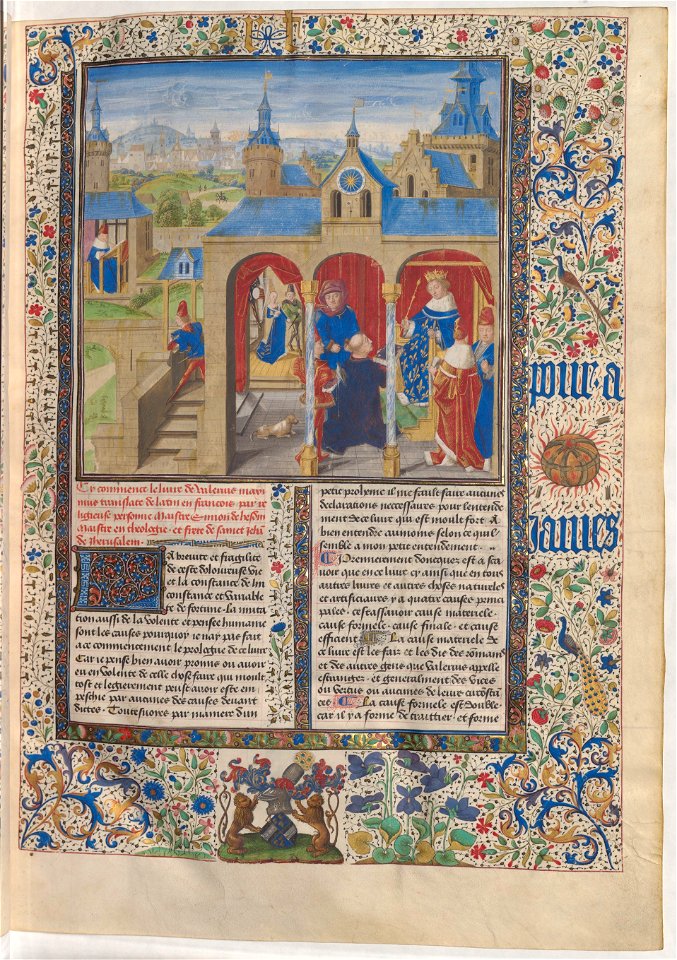 Cy commence le liure de Valerius maxi
mus translate de latin en francois par re
ligieuse personne Maistre Simon de hesdin
Maistre en theologie et frere de sainct Jeh̄
de Jherusalem
A brieute et fragilite
de ceste doloureuse vie
et la constance de lin
constance et variable
de fortune La muta
tion aussi de la volente et pensee humaine
sont les causes pourquoy ie nay pas fait
a ce commencement le prologue de ce liure
Car ie pense bien avoir promis ou avoir
eu en volente de celle chose faire qui moult
tost et legierement peust avoir este em
peschie par aucunes des causes deuant
dittes Toutesuoies par maniere dun
petit prohyme il me fault faire aucunes
declarations necessaires pour lentende
ment de ce liure qui est moult fort A
bien entendre au moins selon ce quil
semble a mon petit entendement
Premierement doncques est a sa
uoir que en ce liure cy ainsi que en tous
autres liures et autres choses natureles
et artificiaires y a quatre causes princi
pales cestassauoir cause materiele
cause formele cause finale et cause
efficient La cause materiele de
ce liure est les fais et les dis des romains
et des autres gens que Valerius appelle
estranges et generalment des vices
ou vertus ou aucunes de leurs circonsta
La cause formele est double
car il y a forme de traittier et forme
pour a
iamés